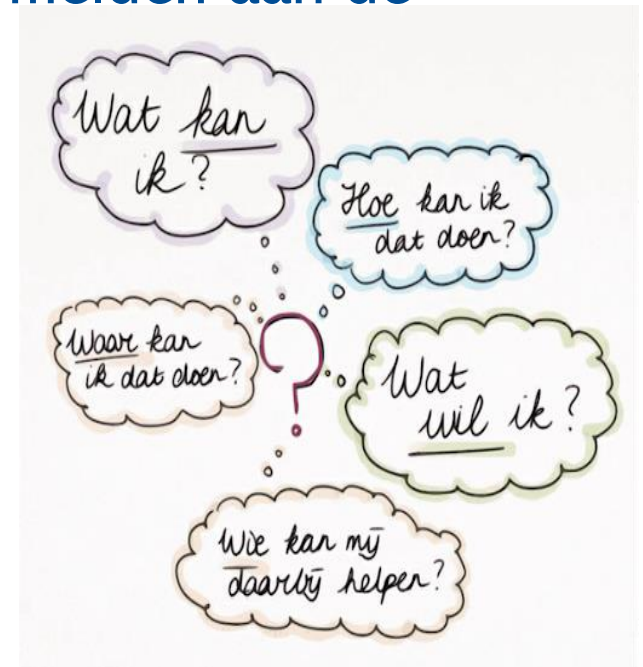 melden aan de
Wat kan
ik?
Hoe kan ik
dat doen?
Waar kan
ik dat doen?
Wat
wil ik?
Wie kan mij
daarbij helpen?